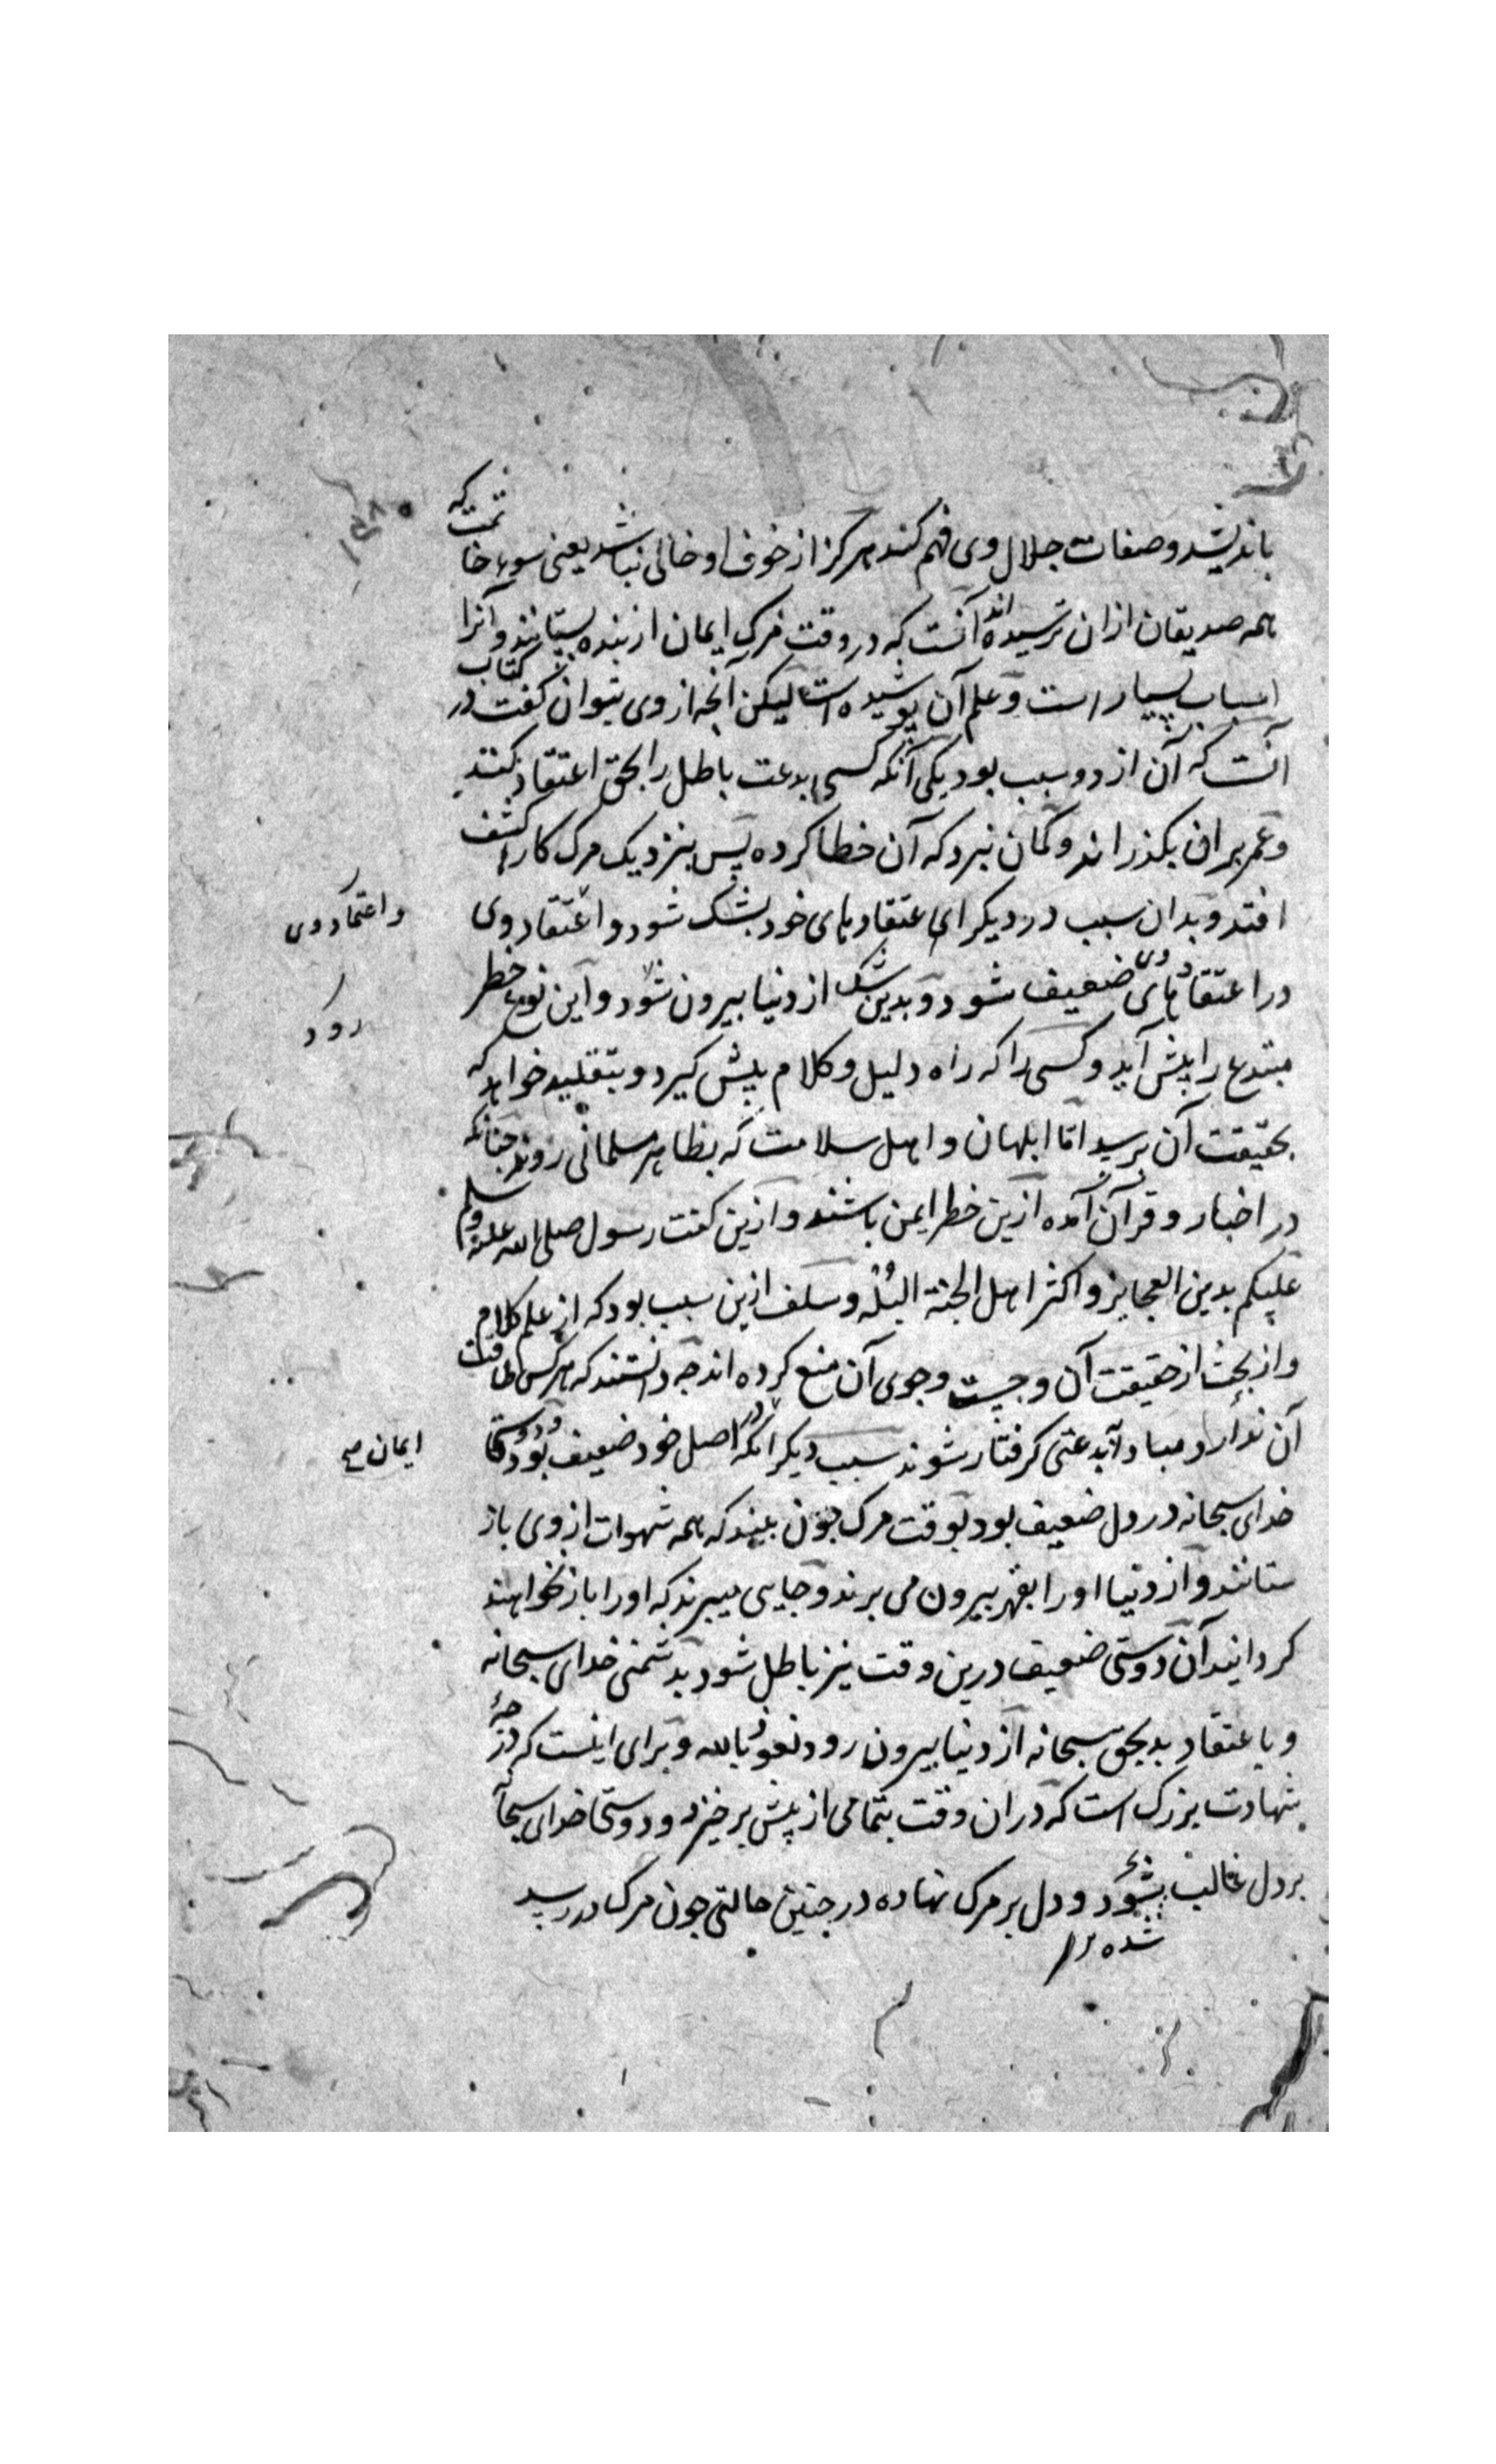 باندیشد وصفات جلال وی فهم کند هرکز از خوف او خالی نباشد یعنی سوء خاتمت که
همه صدیقان ازان ترسیده اند آنست که در وقت مرک ایمان از بنده بستانند وآنرا
اسباب بسیار است وعلم آن پوشیده است لیکن آنچه از وی بتوان کفت در کتاب
آنست که آن از دو سبب بود یکی آنکه کسی بدعت باطل را بحق اعتقاد کند
وعمر بران بکذراند وکمان نبرد که آن خطا کرده پس بنزدیک مرک کار کشف
افتد وبدان سبب در دیکر اعتقادهای خود بشک شود و اعتقاد وی
واعتماد وی
در اعتقادهای وی ضعیف شود وبدین شک از دنیا بیرون شود واین نوع خطر
رود
مبتدع را پیش آید وکسی را که راه دلیل وکلام پیش کیرد وبتقلید خواهد که
بحقیقت آن برسد امّا ابلهان واهل سلامت که بظاهر مسلمانی روند چنانکه
در اخبار وقرآن آمده ازین خطر ایمن باشند وازین کفت رسول صلی الله علیه وسلم
علیکم بدین العجایز واکثر اهل الجنة البُلْه وسلف ازین سبب بود که از علم کلام
واز بحث از حقیقت آن وجست وجوی آن منع کرده اند چه دانستند که هرکس طاقت
آن ندارد مبادا بدعتی کرفتار شوند سبب دیکر انکه در اصل خود ضعیف بود ودوستی
ایمان صح
خدای سبحانه در دل ضعیف بود بوقت مرک چون بیند که همه شهوات ازوی باز
ستانند واز دنیا او را بقهر بیرون می برند وجایی میبرند که او را باز نخواهند
کردانید آن دوستی ضعیف درین وقت نیز باطل شود بدشمنی خدای سبحانه
وباعتقاد بد بحق سبحانه از دنیا بیرون رود نعوذ بالله وبرای اینست که درجهٔ
شهادت بزرک است که دران وقت بتمامی از پیش برخیزد ودوستی خدای سبحانه
بر دل غالب بشود ودل بر مرک نهاده در چنین حالتی چون مرک در رسد
شده